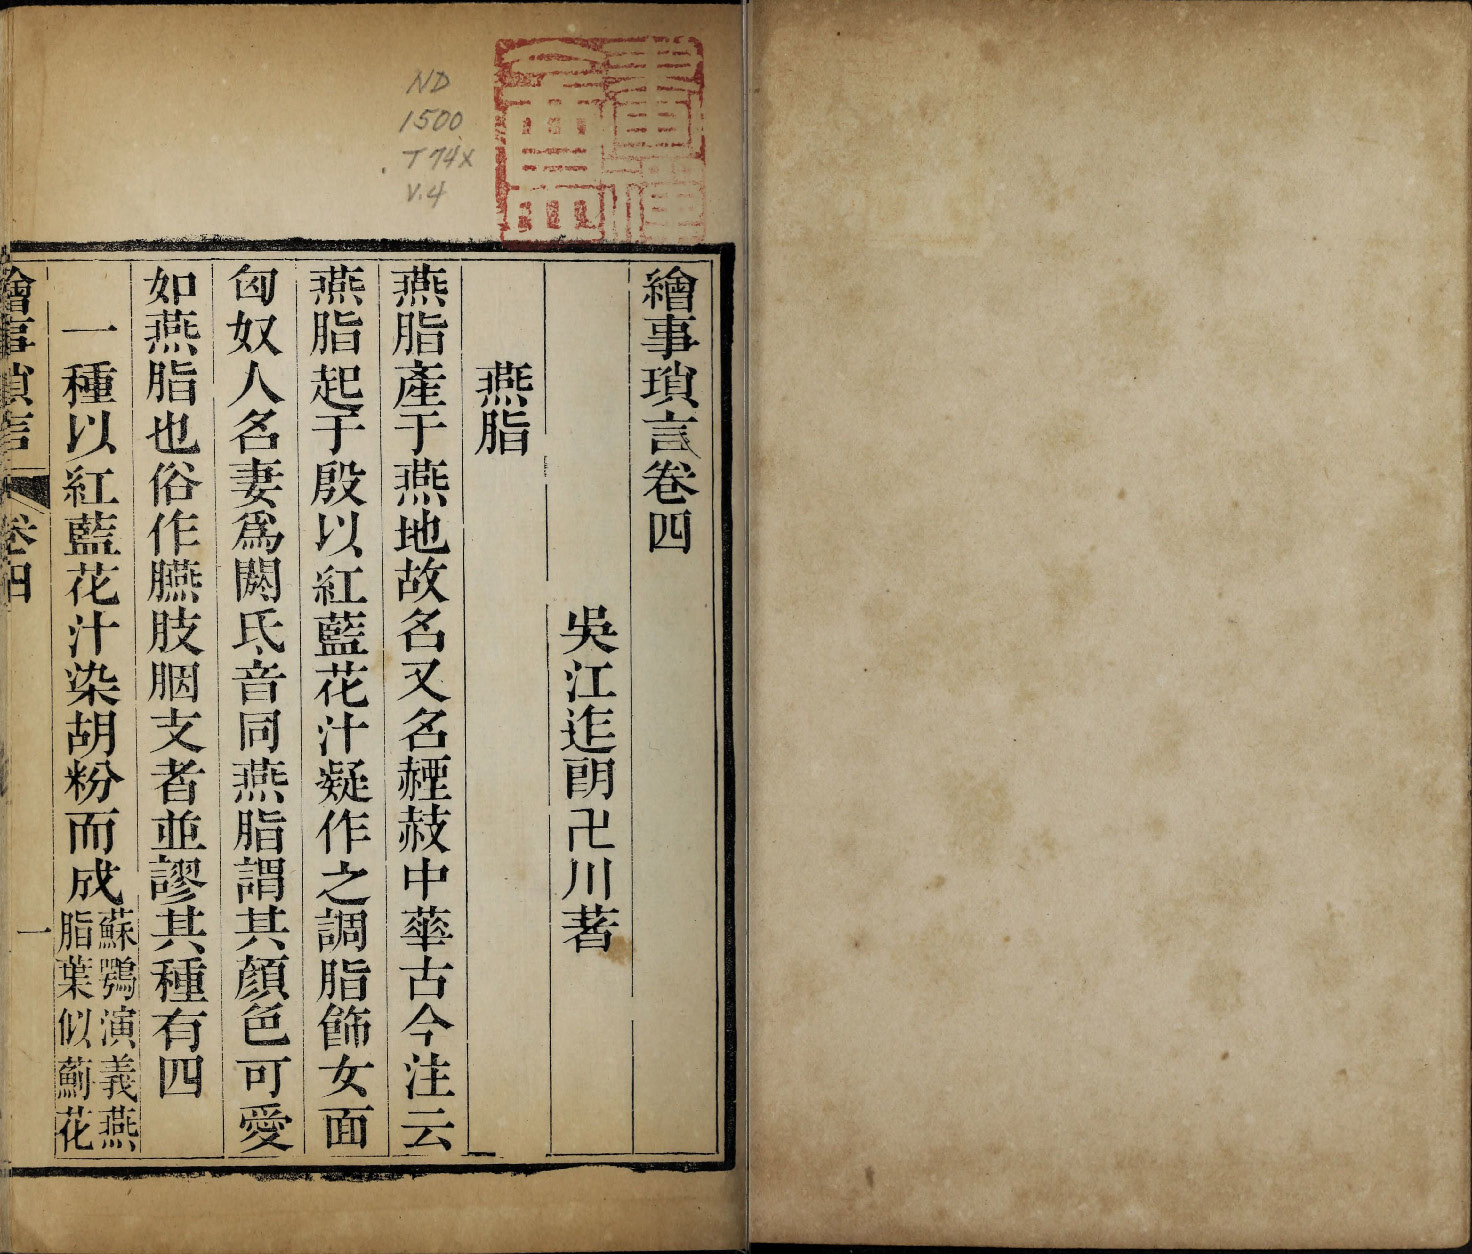 ND
1500
T74X
V.4
繪事瑣言卷四
吳江迮朗卍川著
燕脂
燕脂產于燕地故名又名䞓𧹛中華古今注云
燕脂起于殷以紅藍花汁凝作之調脂飾女面
匈奴人名妻爲閼氏音同燕脂謂其顏色可愛
如燕脂也俗作臙肢胭支者並謬其種有四
一種以紅藍花汁染胡粉而成蘇鶚演義燕
脂葉似薊花
繪事瑣言 卷四 一